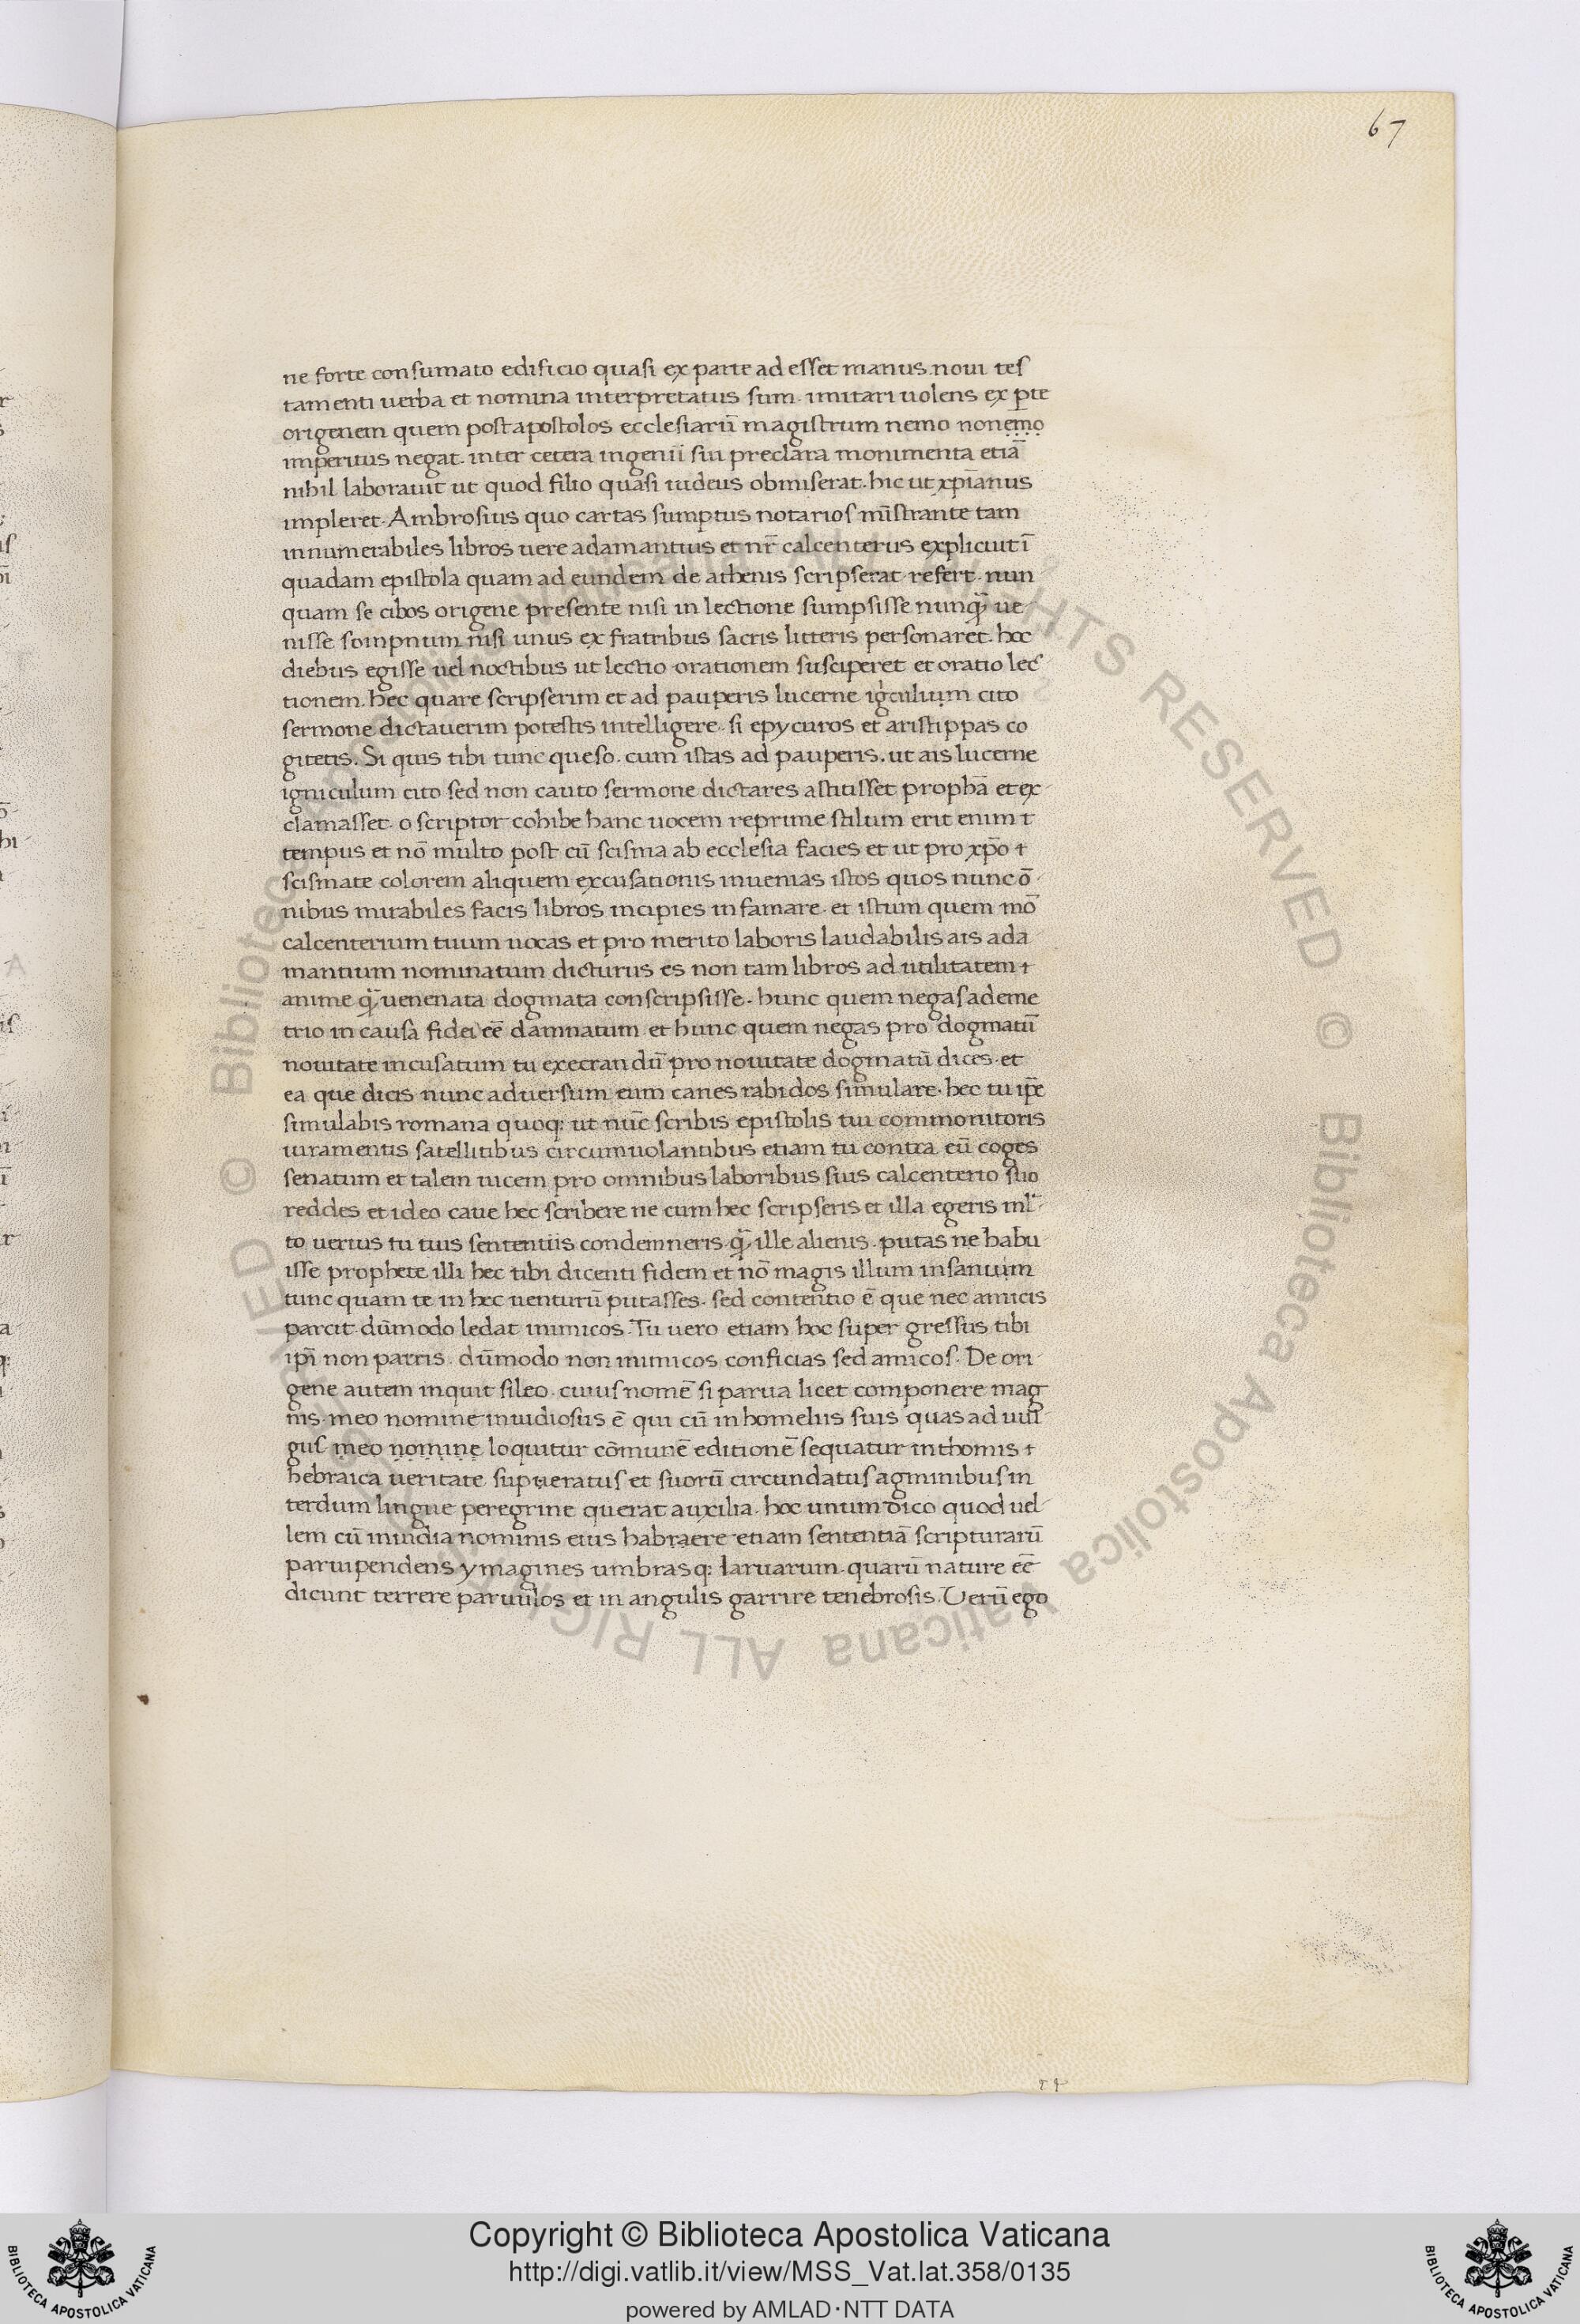 67
ne forte consumato edificio quasi ex parte ad esset manus. noui tes
tamenti uerba et nomina interpretatus sum. imitari uolens ex ꝑte
origenem quem post apostolos ecclesiarū magistrum nemo nonemo
imperitus negat. inter cetera ingenii sui preclara monimenta etiā
nihil laborauit ut quod filio quasi iudeus obmiserat. hic ut xp̄ianus
impleret. Ambrosius quo cartas sumptus notarios mīstrante tam
innumerabiles libros uere adamantius et nr̄ calcenterus explicuit ī
quadam epistola quam ad eundem de athenis scripserat refert. nun
quam se cibos origene presente nisi in lectione sumpsisse nunq̄ ue
nisse sompnum nisi unus ex fratribus sacris litteris personaret. hoc
diebus egisse uel noctibus ut lectio orationem susciperet et oratio lec
tionem. hec quare scripserim et ad pauperis lucerne igͥculium cito
sermone dictauerim potestis intelligere. si epycuros et aristippas co
gitetis. Si quis tibi tunc queso. cum istas ad pauperis. ut ais lucerne
igniculum cito sed non cauto sermone dictares astitisset prophā et ex
clamasset. o scriptor cohibe hanc uocem reprime stilum erit enim
tempus et nō multo post cū scisma ab ecclesia facies et ut pro xp̄o
scismate colorem aliquem excusationis inuenias istos quos nunc ō
nibus mirabiles facis libros incipies infamare. et istum quem mō
calcenterium tuum uocas et pro merito laboris laudabilis ais ada
mantium nominatum dicturus es non tam libros ad utilitatem
anime q̄ uenenata dogmata conscripsisse. hunc quem negas ademe
trio in causa fidei eē damnatum et hunc quem negas pro dogmatū
nouitate incusatum tu execrandū pro nouitate dogmatū dices. et
ea que dicis nunc aduersum eum canes rabidos simulare. hec tu ip̄e
simulabis romana quoq; ut nūc scribis epistolis tui commonitoris
iuramentis satellitibus circumuolantibus etiam tu contra eū coges
senatum et talem uicem pro omnibus laboribus suis calcenterio suo
reddes et ideo caue hec scribere ne cum hec scripseris et illa egeris ml̄
to uerius tu tuis sententiis condemneris q̄ ille alienis. putas ne habu
isse prophete illi hec tibi dicenti fidem et nō magis illum insanium
tunc quam te in hec uenturū putasses. sed contentio ē que nec amicis
parcit dūmodo ledat inimicos. Tu uero etiam hoc super gressus tibi
ip̄i non parcis. dūmodo non inimicos conficias sed amicos. De ori
gene autem inquit sileo. cuius nomē si parua licet componere mag
nis. meo nomine inuidiosus ē qui cū in homeliis suis quas ad uul
gus meo nomine loquitur cōmunē editionē sequatur in thomis
hebraica ueritate superatus et suorū circundatus agminibus in
terdum lingue peregrine querat auxilia. hoc unum dico quod uel
lem cū inuidia nominis eius habraere etiam sententiā scripturarū
paruipendens ymagines umbrasq; laruarum. quarū nature eē
dicunt terrere paruulos et in angulis garrire tenebrosis. Uerū ego
Copyright © Biblioteca Apostolica Vaticana
http://digi.vatlib.it/view/MSS_Vat.lat.358/0135
powered by AMLAD·NTT DATA